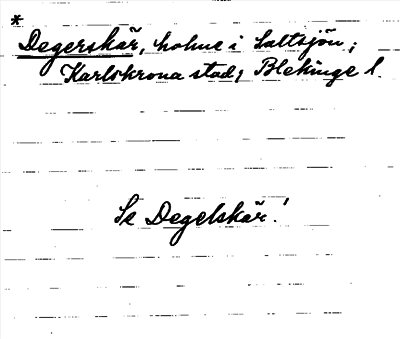 *
Degerskär, holme i Saltsjön;
Karlskrona stad, Blekinge l.
Se Degelskär!